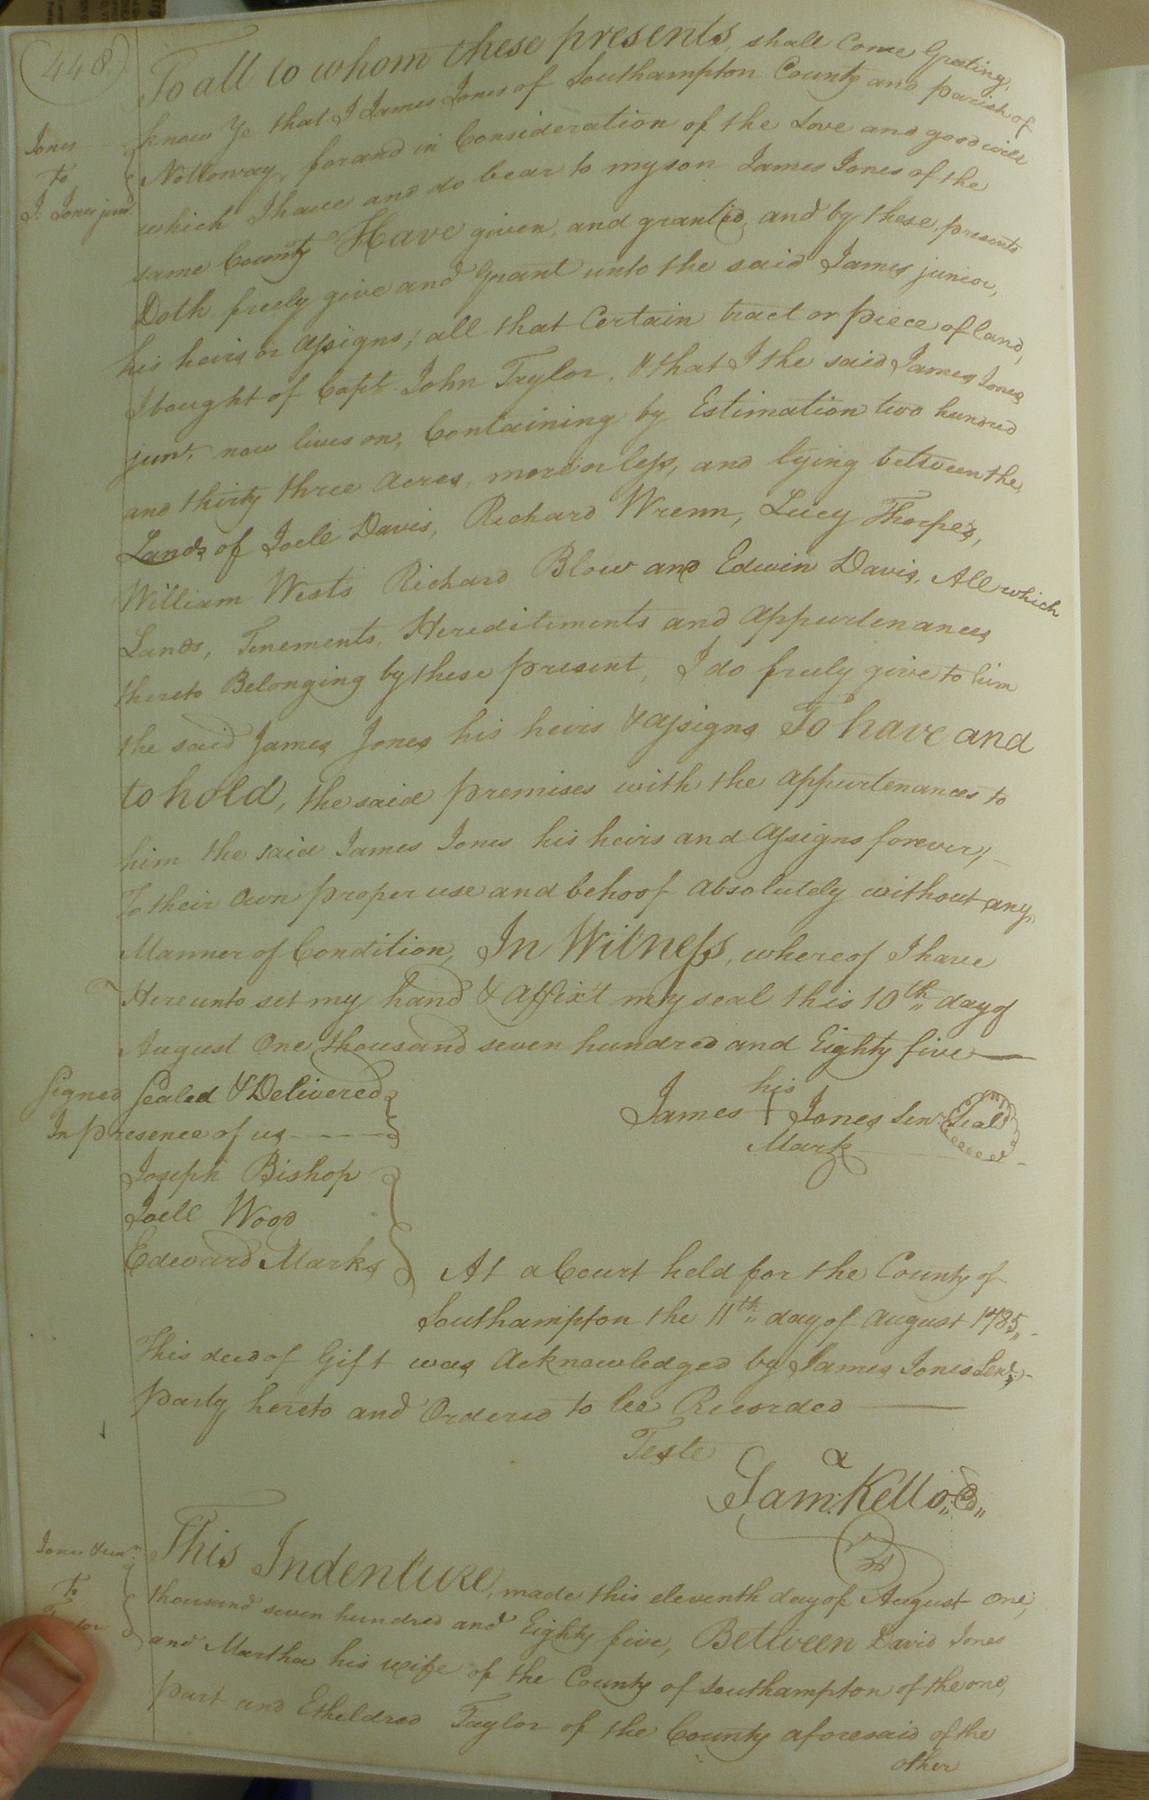 448.
To all to whom these presents, shall Come Greeting,
Jones
to
J. Jones junr.
know Ye that I James Jones of Southampton County and parish of
Nottoway, for and in Consideration of the Love and good will
which I have and do bear to my son James Jones of the
same County Have given, and granted, and by these, presents
Doth freely give and Grant unto the said James junior,
his heirs or assigns; all that Certain tract or piece of land,
I bought of Capt. John Taylor, that I the said James Jones
junr. now lives on, Containing by Estimation two hundred
and thirty three acres, more or less, and lying between the,
Lands of Joell Davis, Richard Wrenn, Lucy Thorpe's,
William Wests Richard Blow and Edwin Davis, All which
Lands, Tenements, Hereditiments and appurtenances
thereto Belonging by these present, I do freely give to him
the said James Jones his heirs & assigns To have and
to hold, the said premises with the appurtenances to
him the said James Jones his heirs and assigns forever,
To their Own proper use and behoof absolutely without any,
Manner of Condition, In Witness, whereof I have
Hereunto set my hand & affix't my seal this 10th day of
August One thousand seven hundred and Eighty five
Signed Sealed & Delivered
In presence of us
his
James Jones Senr Seal
Mark
Joseph Bishop
Joell Wood
Edward Marks
At a Court held for the County of
Southampton the 11th day of August 1785
This deed of Gift was Acknowledged by James Jones Senr.
party hereto and Ordered to bee Recorded
Teste
Sam: Kello
Jones & un
To
This Indenture, made this eleventh day of August One,
thousand seven hundred and Eighty five, Between David Jones
and Martha his wife of the County of Southampton of the one,
part and Etheldred Taylor of the County aforesaid of the
other